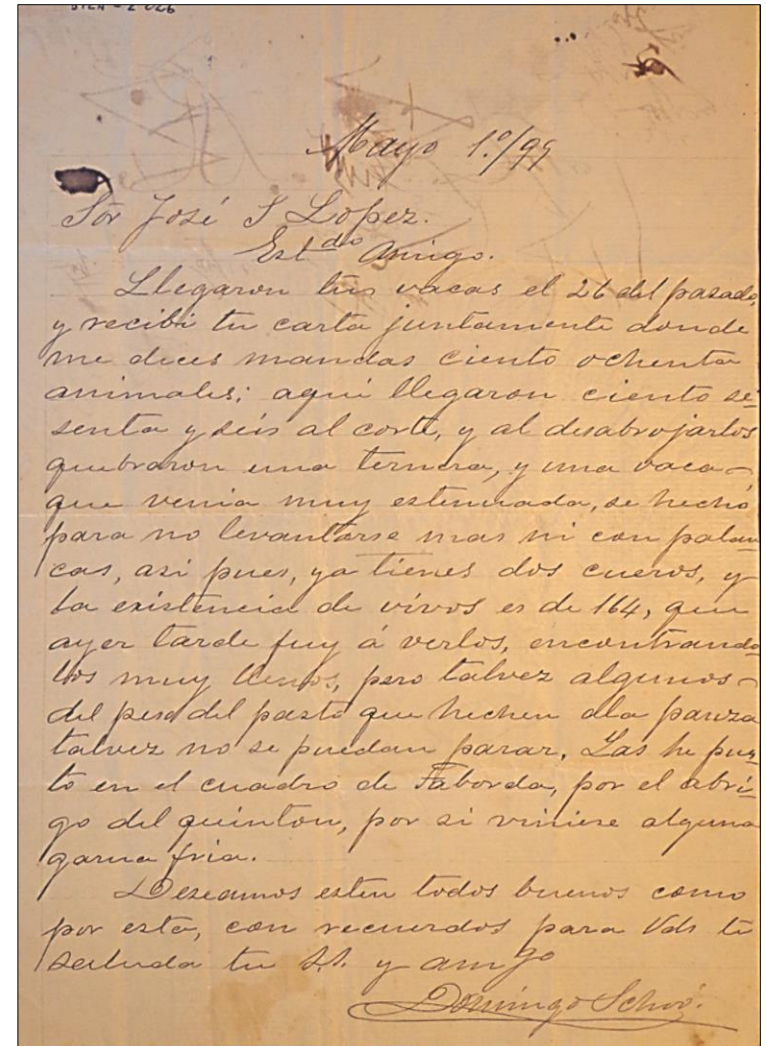 Mayo 1.º/99
Sor José S Lopez.
Estdo Amigo.
Llegaron tus vacas el 26 del pasado,
y recibi tu carta juntamente donde
me dices mandas ciento ochenta
animales; aqui llegaron ciento se-
senta y seis al corte, y al desabrojarlos
quebraron una ternera, y una vaca-
que venia muy estenuada, se hechó
para no levantarse mas ni con palan
cas, asi pues, ya tienes dos cueros, y
la existencia de vivos es de 164, que
ayer tarde fuy á verlos, encontrando
los muy llenos, pero talvez algunos-
del peso del pasto que hechen ala panza
talvez no se puedan parar. Las he pues
to en el cuadro de Taborda, por el abri-
go del quinton, por si viniese alguna
garua fria.
Deseamos esten todos buenos como
por esta, con recuerdos para Vds te
saluda tu S.S. y amgo
Domingo